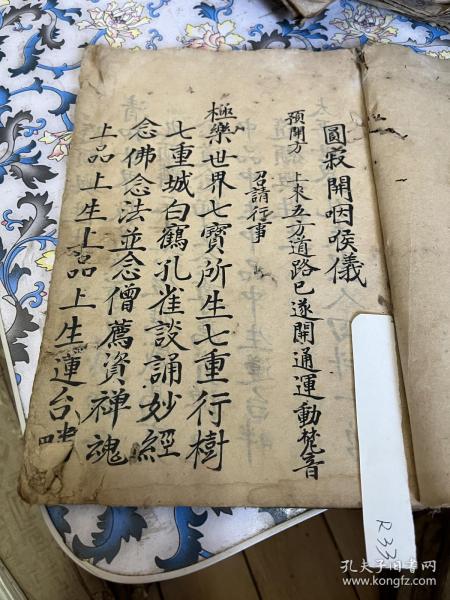 圓寂開咽喉儀
預開方 上來五方道路已遂開通運動梵音
召請行事
極樂世界七寶所生七重行樹
七重城白鶴孔雀談誦妙經
念佛念法並念僧薦資禅魂
上品上生上品上生蓮台畔
R33
孔夫子旧书网
www.kongfz.com